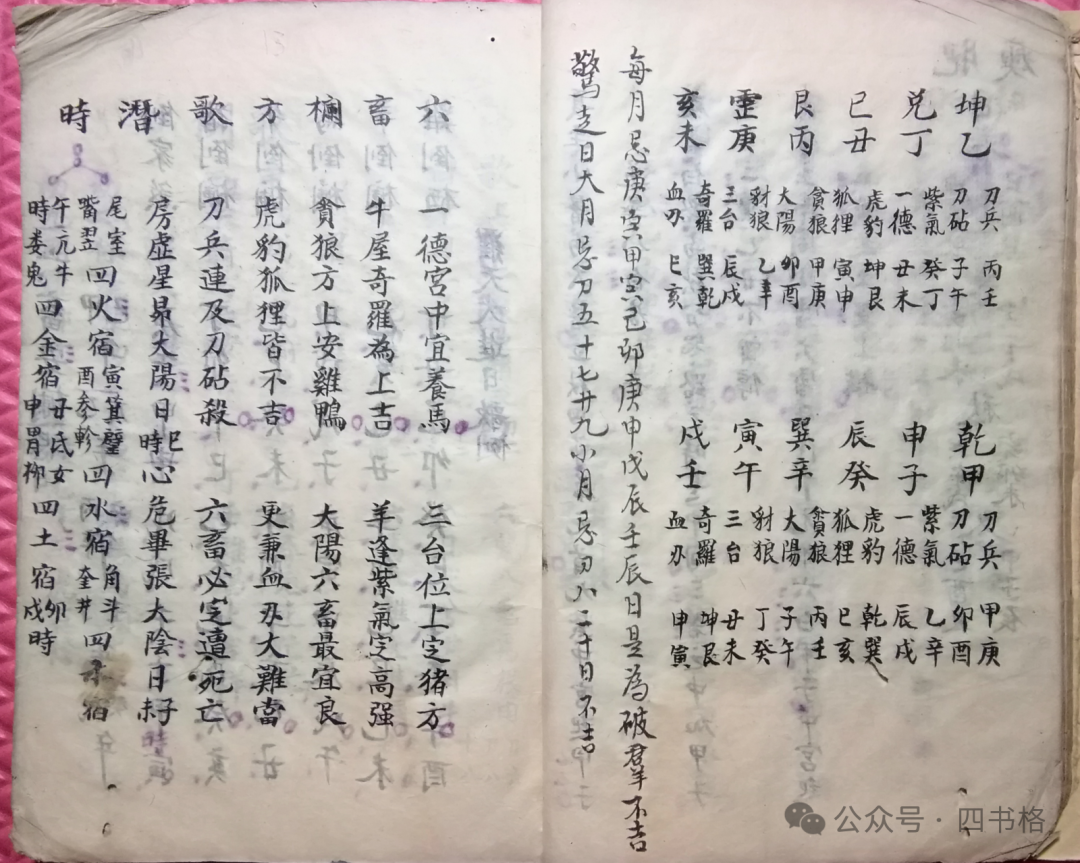 坤乙
兌丁
巳丑
艮丙
庚
亥未
刀兵 丙壬
刀砧 子午
紫氣 癸丁
一德 丑未
虎豹 坤艮
狐狸 寅申
貪狼 甲庚
大陽 卯酉
豺狼 乙辛
三台 辰戌
奇羅 巽乾
血刃 巳亥
乾甲
申子
辰癸
巽辛
寅午
戌壬
刀兵 甲庚
刀砧 卯酉
紫氣 乙辛
一德 辰戌
虎豹 乾巽
狐狸 巳亥
貪狼 丙壬
大陽 子午
豺狼 丁癸
三台 丑未
奇羅 坤艮
血刃 申寅
每月忌庚寅甲寅己卯庚申戊辰壬辰日是為破羣不吉
驚走日大月忌刀五十七廿九小月忌刀八二十日不吉
六畜欄方歌
一德宮中宜養馬 三台位上定猪方
牛屋奇羅為上吉 羊逢紫氣定高强
貪狼方上安雞鴨 大陽六畜最宜良
虎豹狐狸皆不吉 更兼血刃大難當
刀兵連及刀砧殺 六畜必定遭死亡
潛時
房虛星昴大陽日巳時 心危畢張大陰日未子
尾室觜翌四火宿寅酉 箕璧參軫四水宿 角斗奎井四木宿
午時 亢牛婁鬼四金宿丑申 氐女胃柳四土宿卯戌時
公众号·四书格